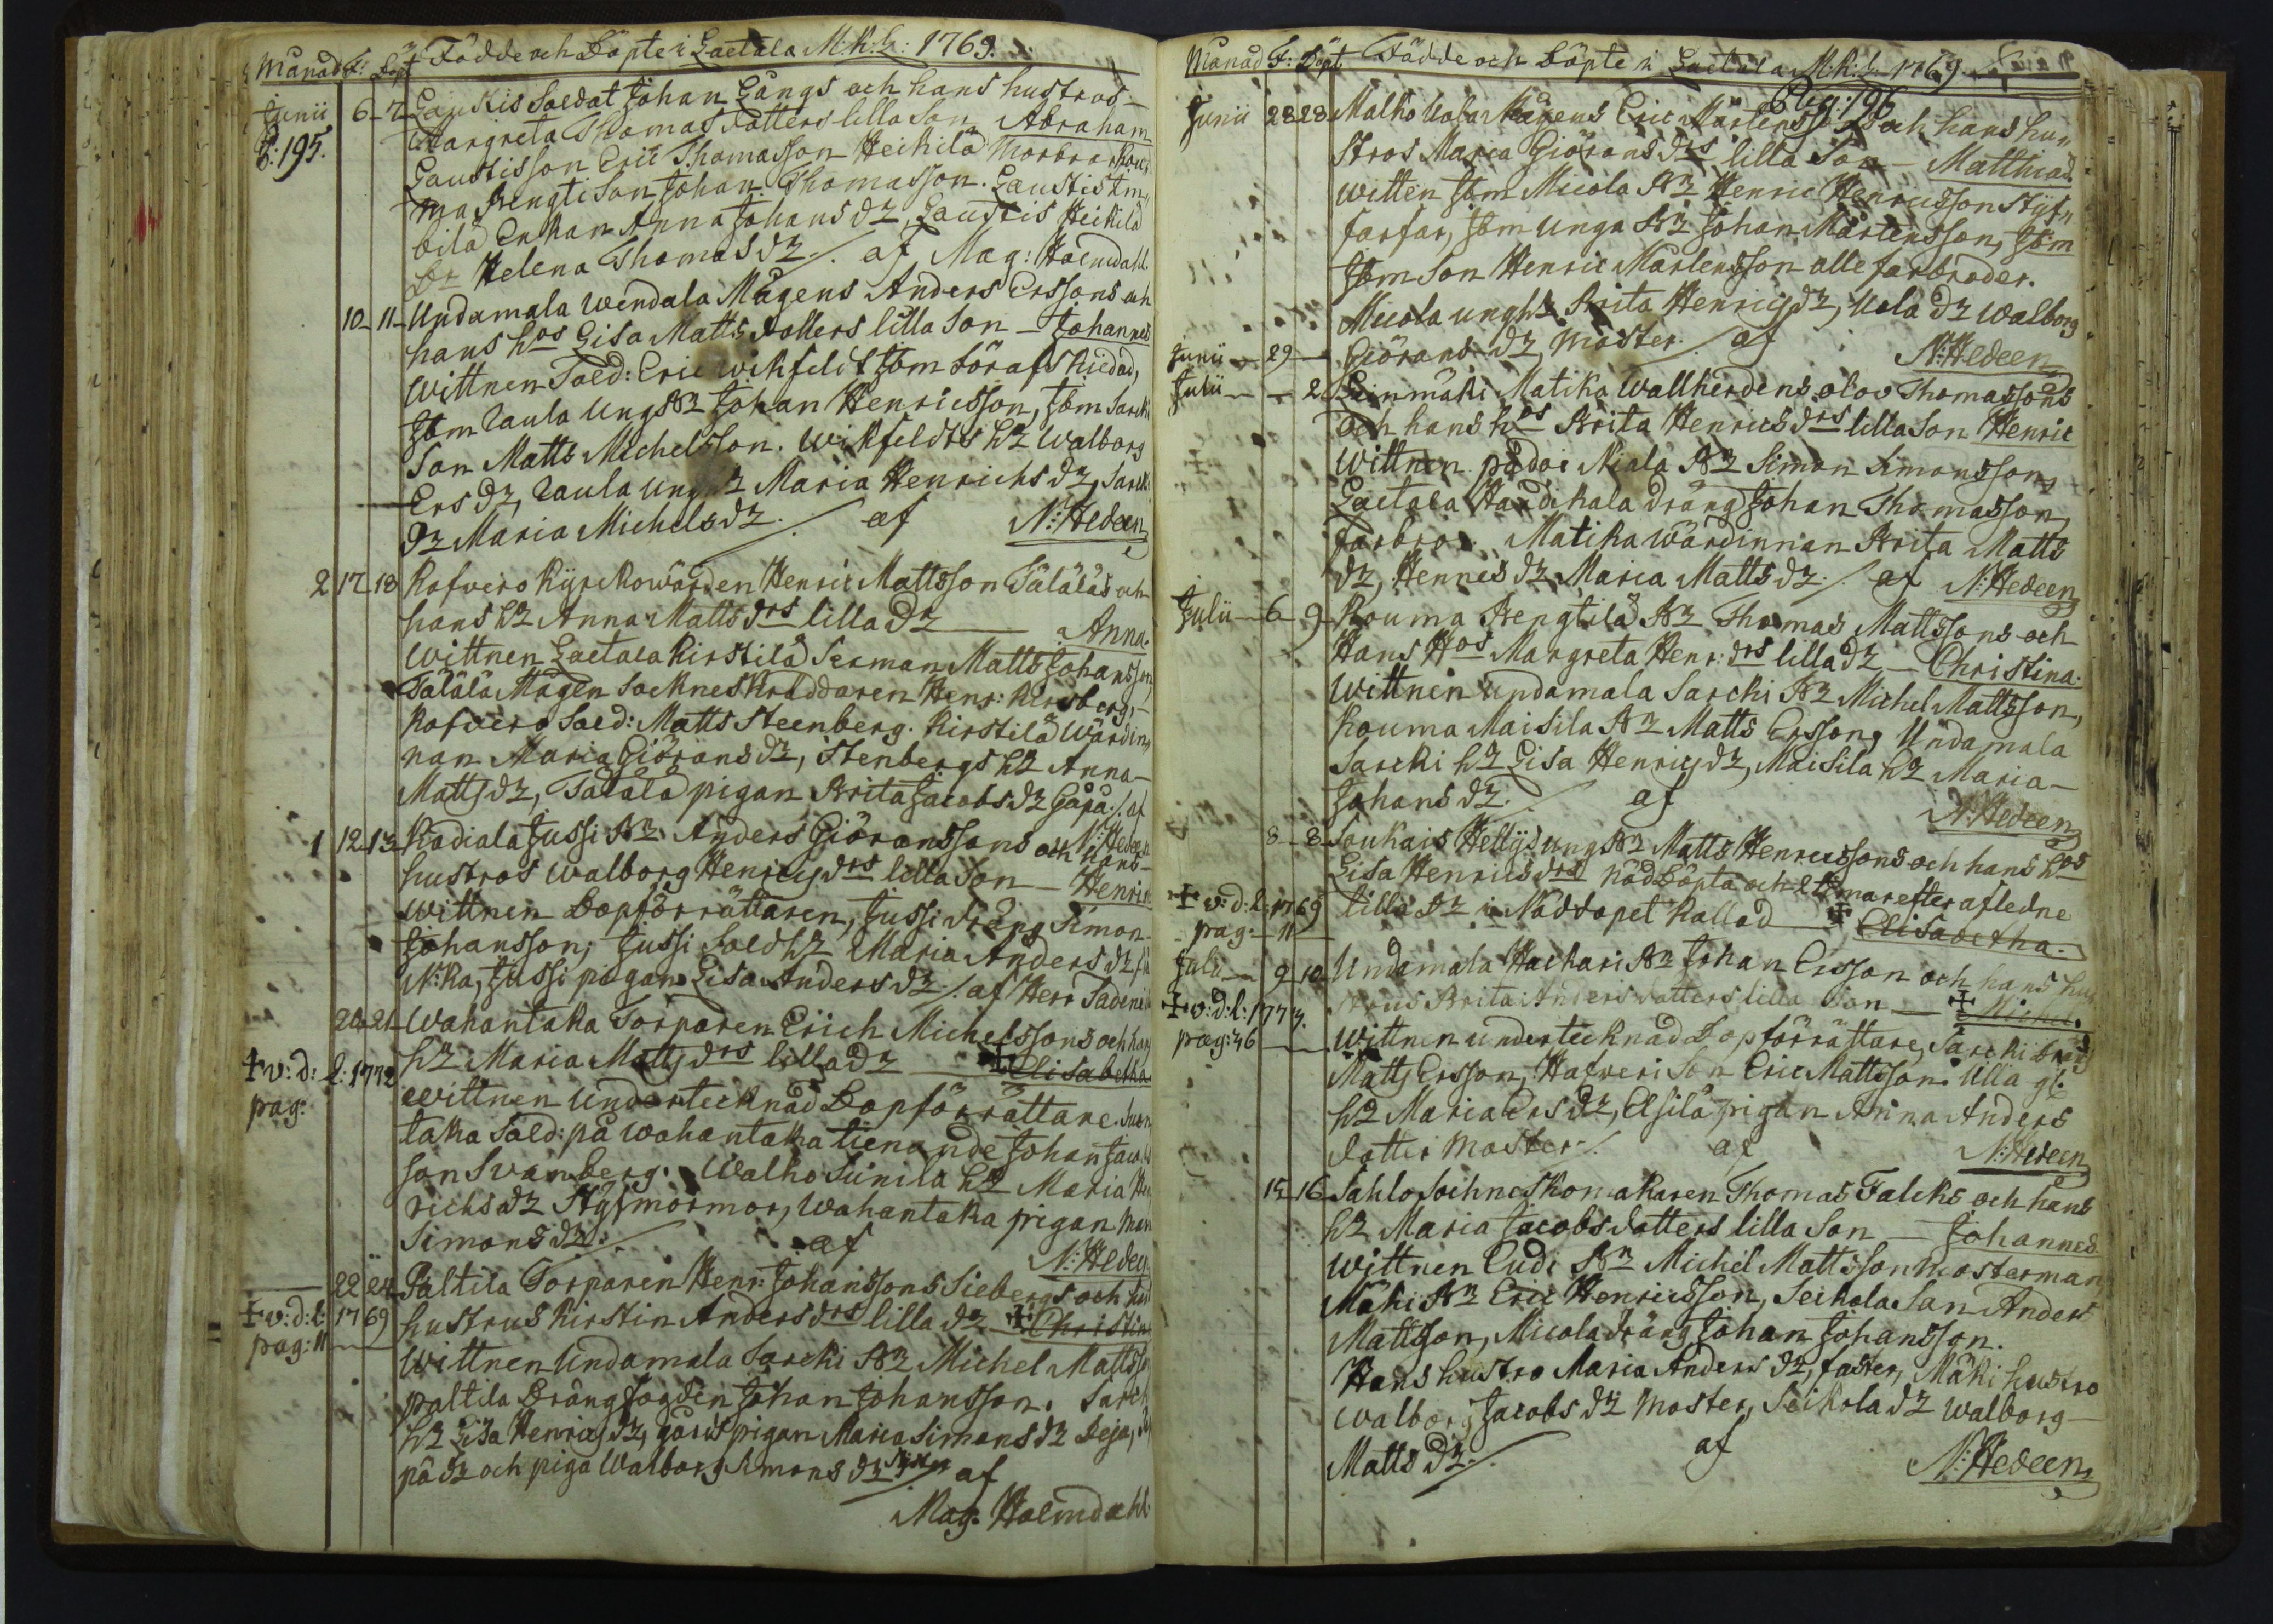 Månad F: Döpt Födde och Döpte i Laetala M:k:h: 1769.
Junii 6 7 Laukis Soldat Johan Långs och hans hustros
P:195. Margreta Thomas dotters lilla Son Abraham
Laustisson Eric Thomasson Heikilä
ma Bengti Son Johan Thomasson. Laustis
bilä Enkan Anna Johans dr, Laustis Heikilä
Helena Thomasdr ./. af Mag: Holmdahl.
10 11 Undamala Wendala Mågens Anders Erssons och
hans hos Lisa Matts dotters lilla Son — Johannes
Wittnen Sold: Eric Wikfeldt
Jbm Saula Ung Bn Johan Henricsson, Jbm Sarcki
Son Matts Michelsson. Wikfeldts h2 Walborg
Ers dr, Saula ung h2 Maria Henrichs dr, Sarcki
dr Maria Michelsdr. /. af N: Hedeen
2 17 18 Kofvero Kyrkowärden Henric Mattsson Täläläs och
hans h2 Anna Matts drs lilla dr — Anna.
Wittnen Laetala Kirstilä Sexman Matts Johansson,
Tälälä Mågen Sockneskräddaren Henr: Kirsberg,
Kofvero Sold: Matts Steenberg. Kirstilä Wärdin„
nan Maria Giörans dr, Stenbergs h2 Anna
Matts dr, Tälälä pigan Brita Jacobs dr ./. af
N: Hedeen
1 12 13 Kodiala Jussi Bn Anders Giöranssons och hans
hustros Walborg Henrics drs lilla Son — Henric.
Wittnen Dopförrättaren, Jussi dräng Simon
Johansson, Jussi Sold h2 Maria Anders dr
N:ka, Jussi pigan Lisa Anders dr ./. af Herr Sadenius
20 21 Wahantaka Torparen Erich Michelssons och hans
h2 Maria Matts drs lilla dr — ✝ Elisabetha
✝ v: d: l: 1772 pag:
Wittnen Undertecknad Dopförrättare.
taka Sold: på Wahantaka tienande Johan Jacobs
son Svanberg. Walko Sunila h2 Maria Hen
richs dr Styfmormor, Wahantaka pigan
Simons dr. /. af N: Hedeen
22 24 Paltila Torparen Henr: Johanssons Siebergs och hans
✝ v: d: l: 1769 hustrus Kirstin Anders drs lilla dr ✝ Christina
pag: 11 Wittnen Undamala Sarcki Bn Michel Mattsson
paltila Drängfogden Johan Johansson. Sarcki
h2 Lisa Henrics dr, gårds pigan Maria Simons dr Deja,
på dr och piga Walborg Simons dr af
Mag. Holmdahl.
Månad F: Döpt Födde och Döpte i Laetala M:k:h: 1769
Pag: 196
Junii 28 28 Malko Uola Mågens Eric Mårtenssons och hans hu„
stros Maria Giörans drs lilla Son — Matthias.
witten Jbm Micola Bn Henric Henricsson Styf„
farfar, Jbm unga Bn Johan Mårtensson, Jbm
Jbm Son Henric Mårtensson alle farbröder.
Micola ung h2 Brita Henrics dr, Uola dr Walborg
Junii 29 Giörans dr Moster ./. af N: Hedeen
Julii — 2 Matika Wallherdens olov Thomassons
och hans hos Brita Henrics drs lilla Son Henric
Wittnen Niala Bn Simon Simonsson,
Laetala Handikala dräng Johan Thomasson,
farbror. Matika wärdinnan Brita Matts
dr, Hennes dr Maria Matts dr. /. af N: Hedeen
Julii 6 9 Kouma Bengtilä Bn Thomas Mattssons och
Hans Hos Margreta Henr: drs lilla dr — Christina.
Wittnen Undamala Sarcki Bn Michel Mattsson,
Kouma Maisila Bn Matts Ersson, Undamala
Sarcki h2 Lisa Henrics dr, Maisila h2 Maria
Johans dr. /. af N: Hedeen
8 8 Soukais Hellys ung Bn Matts Henricssons och hans hos
Lisa Henrics drs nöd Döpta och 2 timar efter afledne
✝ v: d: l: 1769 lilla dr i Nöddopet kallad — ✝ Elisabetha.
pag: 11
Julii 9 10 Undamala Hachari Bn Johan Ersson och hans hu„
strus Brita Anders dotters lilla Son — ✝ Michel.
✝ v: d: l: 1774. pag: 46
Wittnen undertecknad Dopförrättare, Sarcki dräng
Matts Ersson, Hafveri Son Eric Mattsson. Ulla gl:
h2 Maria Ers dr, Elsilä pigan Anna Anders
dotter Moster ./. af N: Hedeen
15 16 Sahlo Sockneskomakaren Thomas Falcks och hans
h2 Maria Jacobs dotters lilla Son — Johannes
Wittnen Eudi Bn Michel Mattsson Mosterman,
Mäki Bn Eric Henricsson, Seikola Son Anders
Mattsson, Micola dräng Johan Johansson.
Hans hustro Maria Anders dr, faster, Mäki hustro
Walborg Jacobs dr Moster, Seikola dr Walborg
Matts dr. /. af N: Hedeen